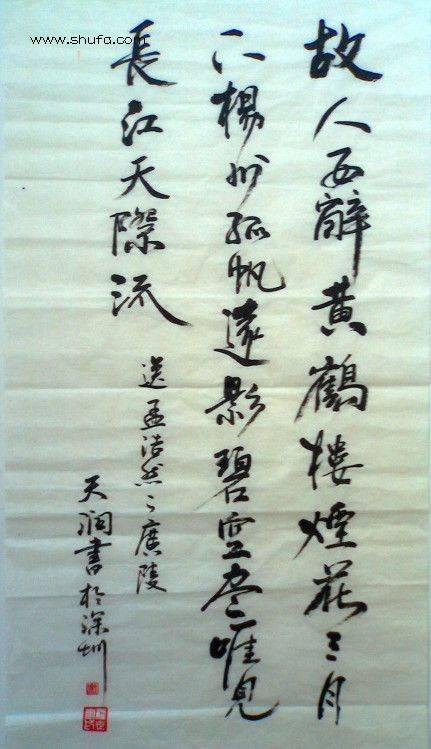 www.shufa.c
故人西辭黄鶴樓煙花三月
下楊州孤帆遠影碧空盡唯見
長江天際流
送孟浩然之廣陵
天润書於深圳